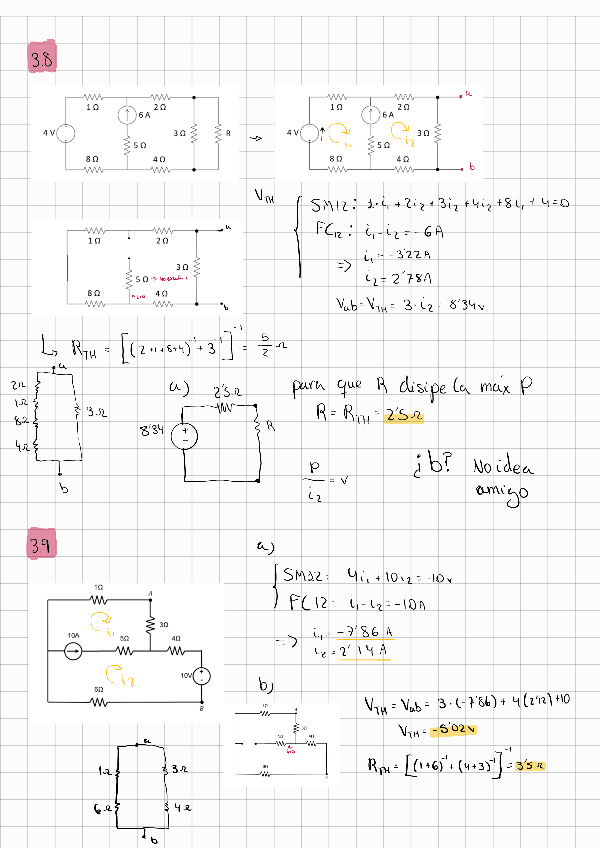 3.8
1 Ω 2 Ω
6 A
4 V 3 Ω R
5 Ω
8 Ω 4 Ω
1 Ω 2 Ω a
6 A
4 V i₁ i₂ 3 Ω
5 Ω
8 Ω 4 Ω b
V_TH
SM12: 1·i₁ + 2i₂ + 3i₂ + 4i₂ + 8i₁ + 4 = 0
FC₁₂: i₁ - i₂ = -6A
=> i₁ = -3'22A
i₂ = 2'78A
Vab = V_TH = 3·i₂ = 8'34v
1 Ω 2 Ω a
3 Ω
5 Ω
8 Ω 4 Ω b
R_TH = [(2+1+8+4)⁻¹ + 3⁻¹]⁻¹ = 5/2 Ω
a
2Ω
1Ω
8Ω
4Ω
3Ω
b
a)
2'5Ω
8'34
R
para que R disipe la máx P
R = R_TH = 2'5Ω
P/i₂ = v
¿b? No idea
amigo
3.9
1Ω A
i₁ 3Ω
10A 5Ω 4Ω
i₂ 10V
6Ω B
a)
SM12: 4i₁ + 10i₂ = -10v
FC12: i₁ - i₂ = -10A
=> i₁ = -7'86 A
i₂ = 2'14 A
b)
1Ω A
3Ω
5Ω 4Ω
6Ω B
V_TH = Vab = 3·(-7'86) + 4(2'12) + 10
V_TH = -5'02v
R_TH = [(1+6)⁻¹ + (4+3)⁻¹]⁻¹ = 3'5Ω
a
1Ω 3Ω
6Ω 4Ω
b